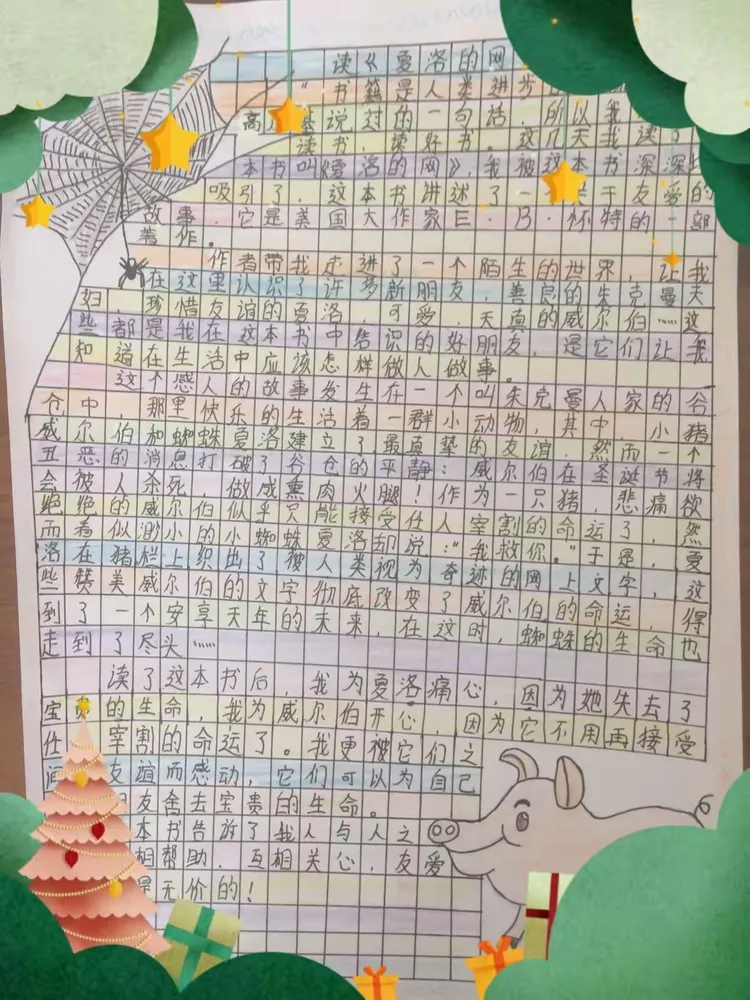 读《夏洛的网
“书籍是人类进步
高 说过的一句话，所以我
读书，读好书。这几天我读了
本书叫《夏洛的网》，我被这本书深深
吸引了，这本书讲述了一 于友爱的
故事，它是美国大作家E·B·怀特的一部
著作。
作者带我走进了一个陌生的世界，让我
在这里认识了许多新朋友，善良的朱克曼夫
妇，珍惜友谊的夏洛，可爱、天真的威尔伯……这
些都是我在这本书中告识的好朋友，是它们让我
知道在生活中应该怎样做人做事。
这个感人的故事发生在一个叫朱克曼人家的谷
仓中，那里快乐的生活着一群小动物，其中，小猪
威尔伯和蜘蛛夏洛建立了最真挚的友谊，然而一个
丑恶的消息打破了谷仓的平静：威尔伯在圣诞节将
会被人杀死，做成熏肉火腿！作为一只猪，悲痛欲
绝绝的威尔伯似乎只能接受任人宰割的命运了，然
而看似渺小的小蜘蛛夏洛却说：“我救你。”于是，夏
洛在猪栏上织出了被人类视为奇迹的网上文字，这
些赞美威尔伯的文字彻底改变了威尔伯的命运，得
到了一个安享天年的未来，在这时，蜘蛛的生命也
走到了尽头……
读了这本书后，我为夏洛痛心，因为她失去了
宝贵的生命，我为威尔伯开心，因为它不用再接受
任 宰割的命运了。我更被它们之
间 友谊而感动，它们可以为自己
友舍去宝贵的生命。
本书告诉了我人与人之
相帮助，互相关心，友爱
是无价的！